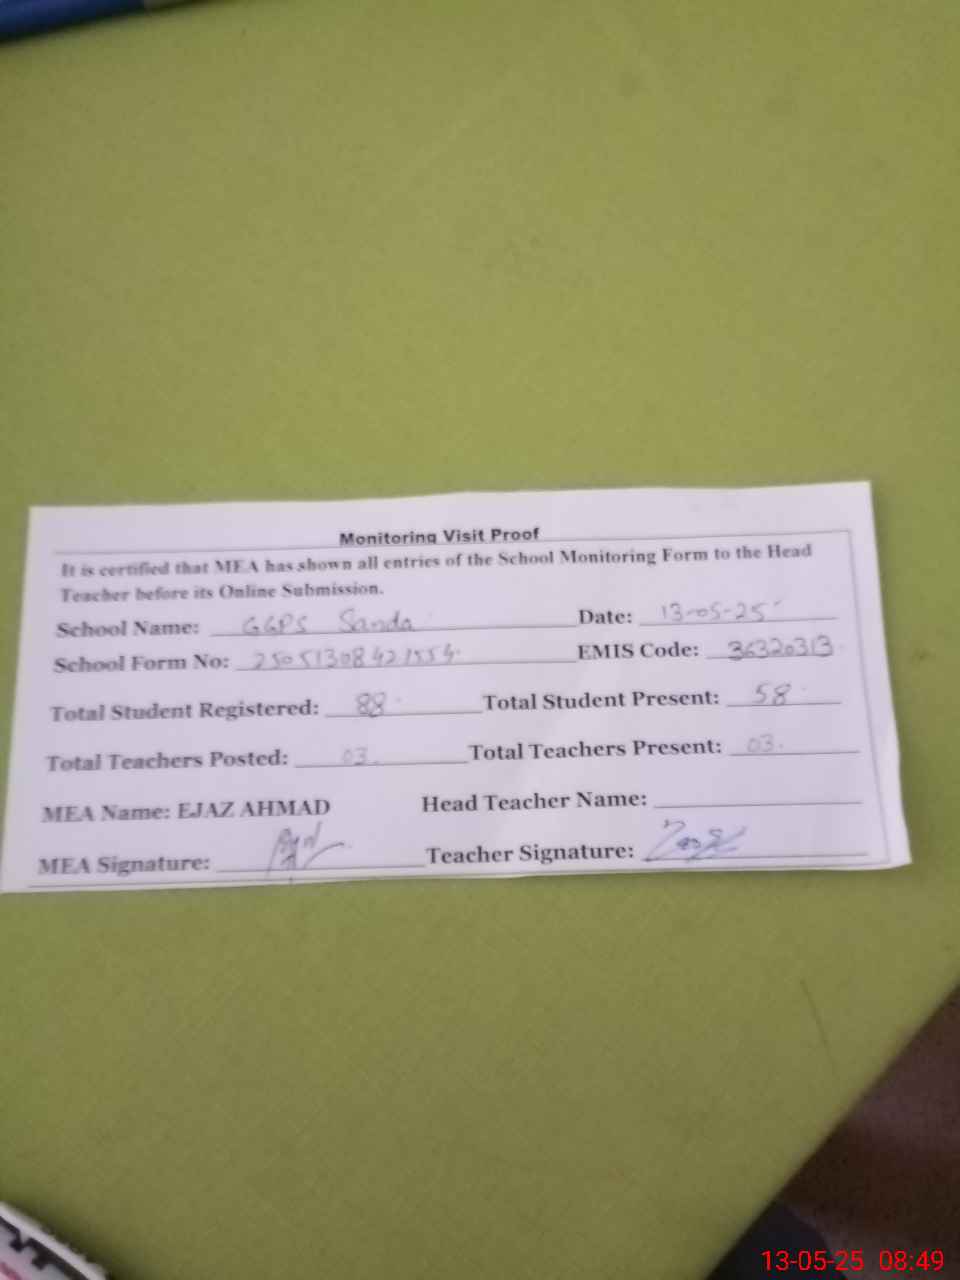 Monitoring Visit Proof
It is certified that MEA has shown all entries of the School Monitoring Form to the Head
Teacher before its Online Submission.
School Name: GGPS Sanda Date: 13-05-25
School Form No: 25051308421554 EMIS Code: 36320313
Total Student Registered: 88 Total Student Present: 58
Total Teachers Posted: 03 Total Teachers Present: 03
MEA Name: EJAZ AHMAD Head Teacher Name:
MEA Signature: Teacher Signature:
13-05-25 08:49